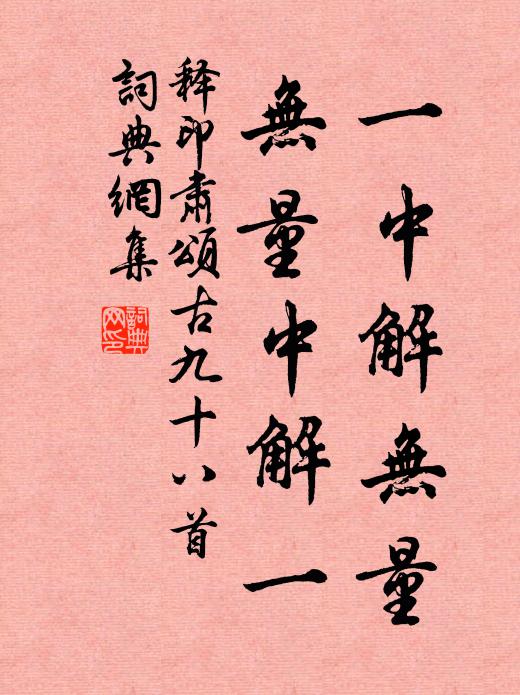 一中解無量
無量中解一
释印肃頌古九十八首
詞典網集
詞典
网印